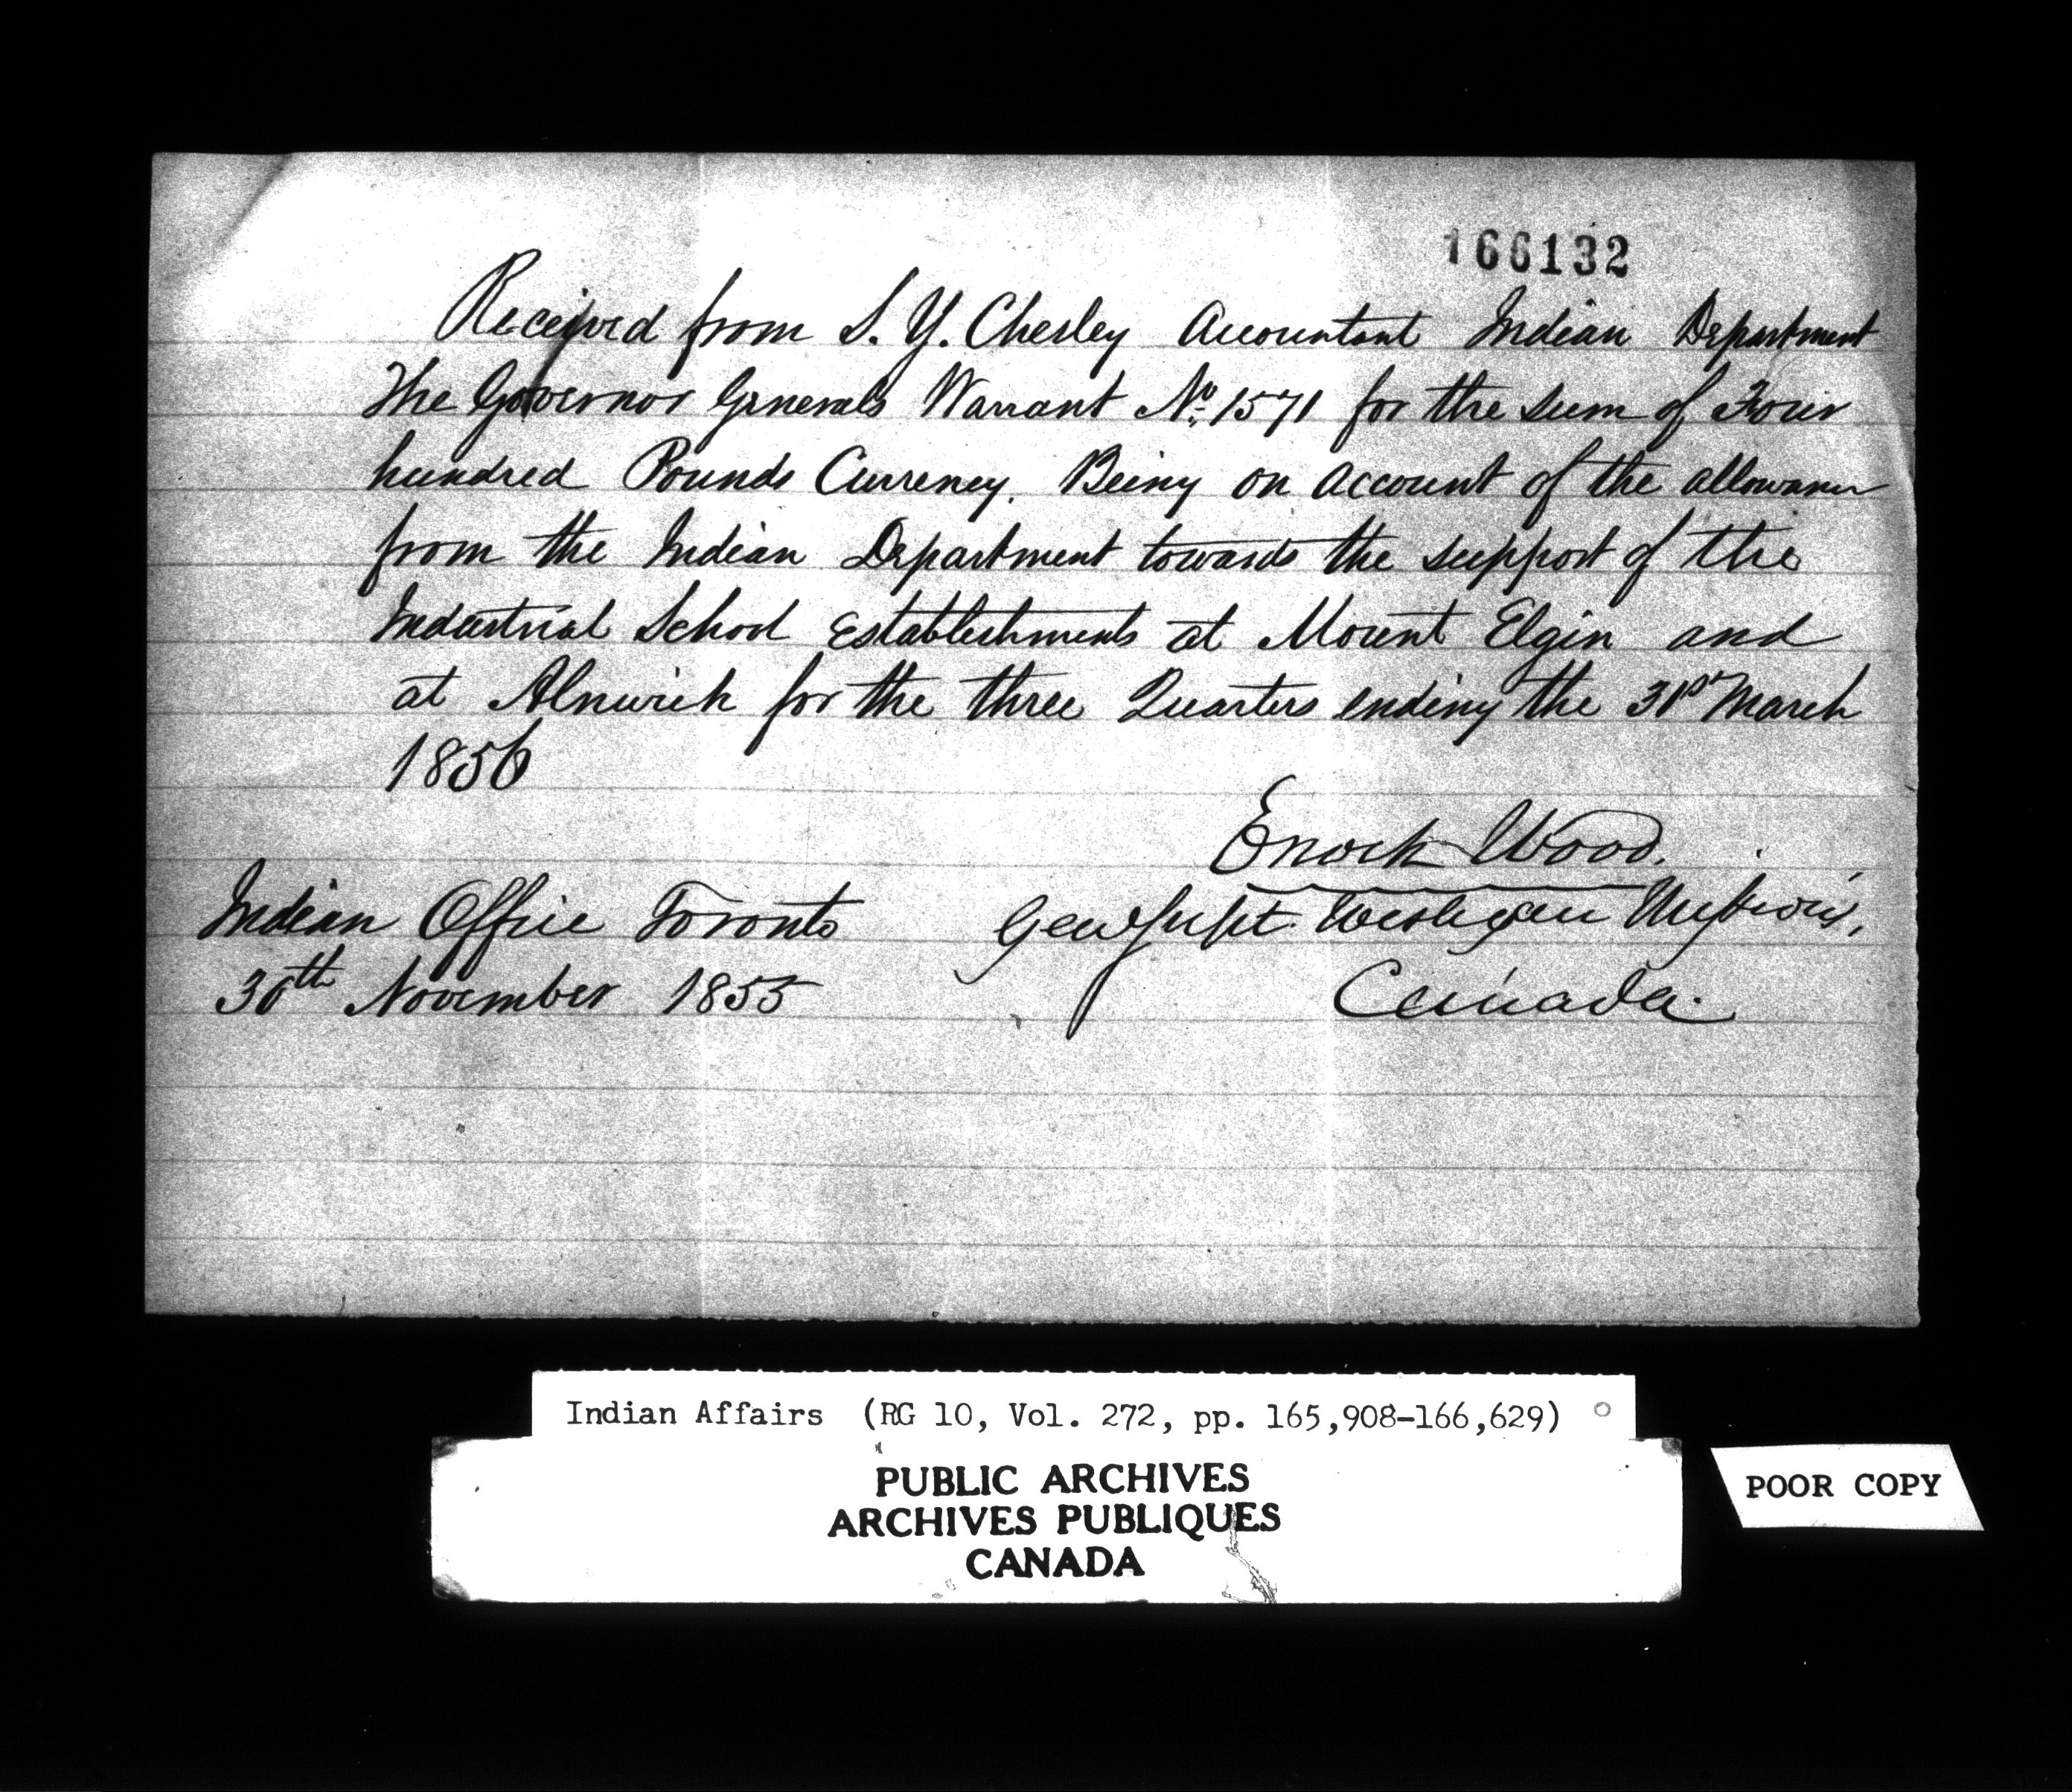 166132
Received from S. Y. Chesley Accountant Indian Department
The Governor Generals Warrant No. 1571 for the sum of Four
hundred Pounds Currency. Being on account of the allowance
from the Indian Department towards the support of the
Industrial School Establishments at Mount Elgin and
at Alnwick for the three Quarters ending the 31st March
1856
Enoch Wood.
Indian Office Toronto
Genl Supt. Wesleyan Missions,
30th November 1855
Canada.
Indian Affairs (RG 10, Vol. 272, pp. 165,908-166,629)
PUBLIC ARCHIVES
ARCHIVES PUBLIQUES
CANADA
POOR COPY